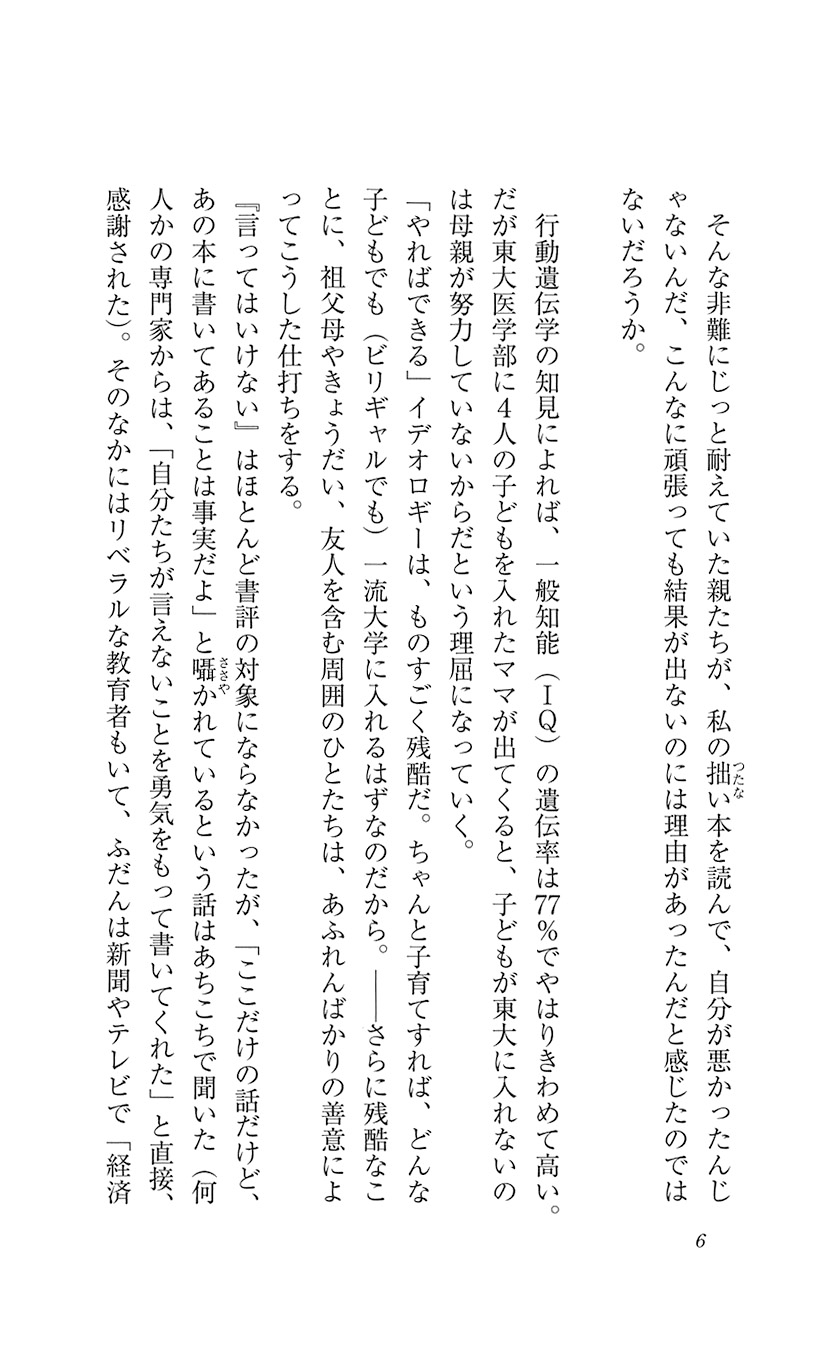 そんな非難にじっと耐えていた親たちが、私の拙い本を読んで、自分が悪かったんじ
つたな
ゃないんだ、こんなに頑張っても結果が出ないのには理由があったんだと感じたのでは
ないだろうか。
行動遺伝学の知見によれば、一般知能（ＩＱ）の遺伝率は77％でやはりきわめて高い。
だが東大医学部に４人の子どもを入れたママが出てくると、子どもが東大に入れないの
は母親が努力していないからだという理屈になっていく。
「やればできる」イデオロギーは、ものすごく残酷だ。ちゃんと子育てすれば、どんな
子どもでも（ビリギャルでも）一流大学に入れるはずなのだから。――さらに残酷なこ
とに、祖父母やきょうだい、友人を含む周囲のひとたちは、あふれんばかりの善意によ
ってこうした仕打ちをする。
『言ってはいけない』はほとんど書評の対象にならなかったが、「ここだけの話だけど、
あの本に書いてあることは事実だよ」と囁かれているという話はあちこちで聞いた（何
ささや
人かの専門家からは、「自分たちが言えないことを勇気をもって書いてくれた」と直接、
感謝された）。そのなかにはリベラルな教育者もいて、ふだんは新聞やテレビで「経済
6